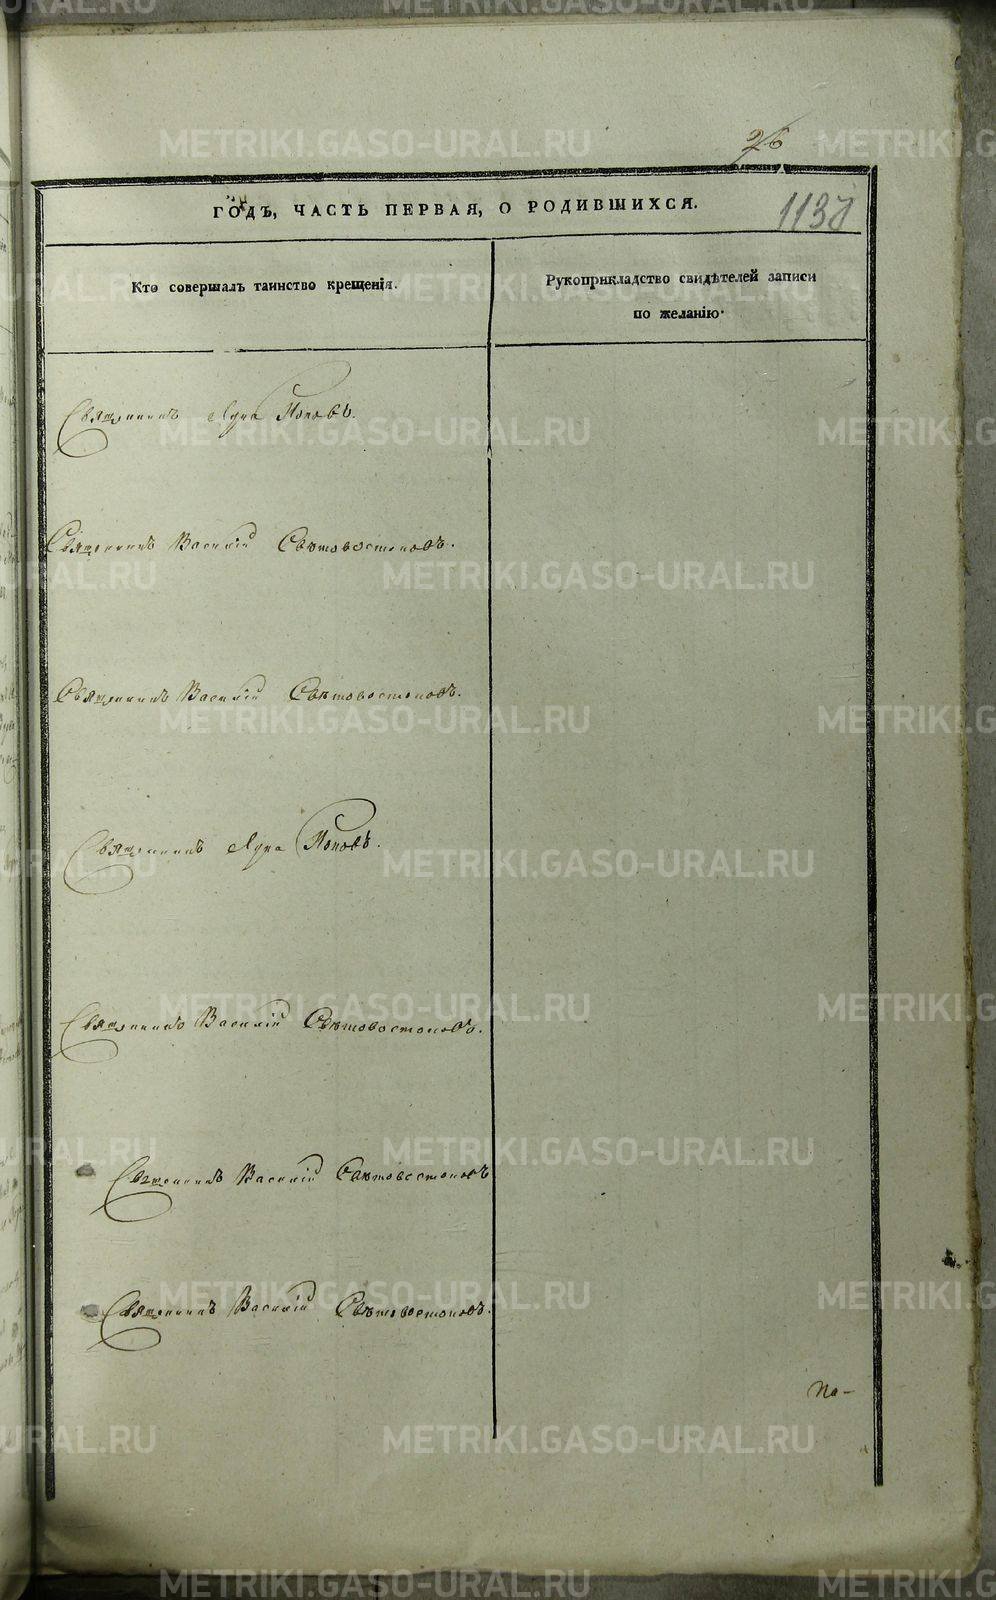 METRIKI.GASO-URAL.RU
26
1138
ГОДЪ, ЧАСТЬ ПЕРВАЯ, О РОДИВШИХСЯ.
Кто совершалъ таинство крещенія.
Рукоприкладство свидѣтелей записи
по желанію.
Священникъ Лука Поповъ.
Священникъ Василій Свѣтовостоковъ.
Священникъ Василій Свѣтовостоковъ.
Священникъ Лука Поповъ.
Священникъ Василій Свѣтовостоковъ.
Священникъ Василій Свѣтовостоковъ
Священникъ Василій Свѣтовостоковъ.
по-